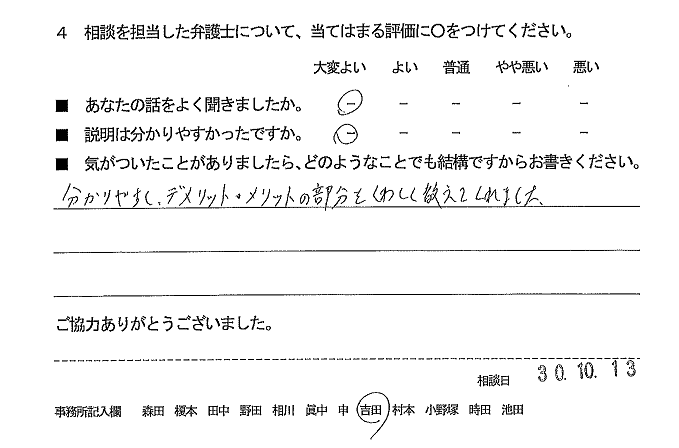 4 相談を担当した弁護士について、当てはまる評価に〇をつけてください。
大変よい よい 普通 やや悪い 悪い
■ あなたの話をよく聞きましたか。 － － － － －
■ 説明は分かりやすかったですか。 － － － － －
■ 気がついたことがありましたら、どのようなことでも結構ですからお書きください。
分かりやすく、デメリット・メリットの部分をくわしく教えてくれました。
ご協力ありがとうございました。
相談日 30.10.13
事務所記入欄 森田 榎本 田中 野田 相川 眞中 申 吉田 村本 小野塚 時田 池田